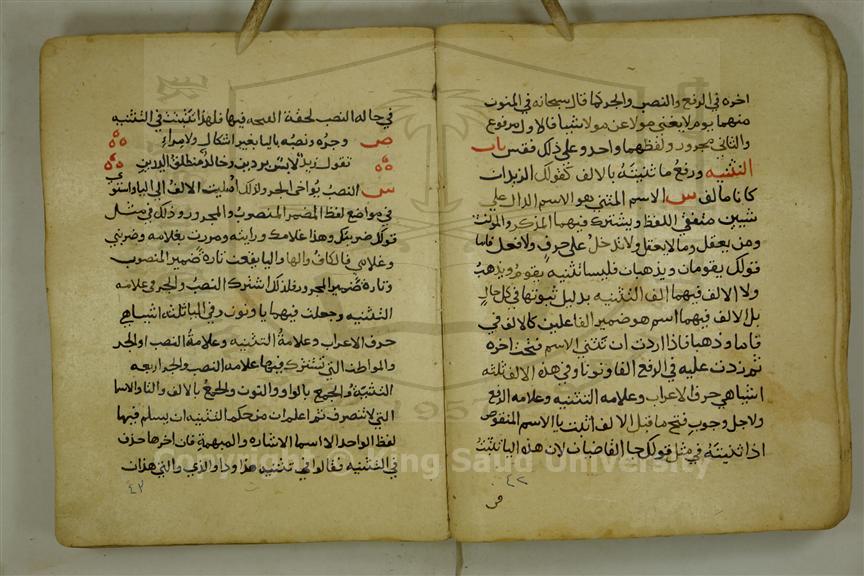 اخره في الرفع والنصب والجر كما قال سبحانه في المنون
منهما يوم لا يغني مولا عن مولا شيا فالاول مرفوع
والثاني مجرور ولفظهما واحد وعلى ذلك فقس باب
التثنيه ورفع ما ثنيته بالالف كقولك الزيدان
كانا مالف س الاسم المثنى هو الاسم الدال على
شيين متفقي اللفظ ويشترك فيهما المذكر والمونث
ومن يعقل وما لا يعقل ولا تدخل على حرف ولا فعل فاما
قولك يقومان ويذهبان فليسا تثنيه يقوم ويذهب
ولا الالف فيهما الف التثنيه بدليل ثبوتها في كل حال
بل الالف فيهما اسم هو ضمير الفاعلين كالالف في
قاما وذهبا فاذا اردت ان تثني الاسم فتحت اخره
ثم زدت عليه في الرفع الفا ونونا وفي هذه الالف ثلثه
اشيا هي حرف الاعراب وعلامه التثنيه وعلامه الرفع
ولاجل وجوب فتح ما قبل الالف اثبت يا الاسم المنقوص
اذا ثنيته في مثل قولك جا القاضيان لان هذه اليا تثبت
٤٢
في حاله النصب لخفة الفتحه فيها فلهذا تثبت في التثنيه
ص وجره ونصبه باليا بغير اشكال ولا مراء
تقول زيد لابس بردين وخالد منطلق اليدين
س النصب يواخي الجر ولذلك قلبت الالف الى اليا واستوي
في مواضع لفظ المضمر المنصوب والمجرور وذلك في مثل
قولك ضربتك وهذا غلامك ورايته ومررت بغلامه وضربني
وغلامي فالكاف والها واليا يقعن تارة ضمير المنصوب
وتارة ضمير المجرور فلذلك اشترك النصب والجر في علامه
التثنيه وجعلت فيهما يا ونون وفي اليا ثلثه اشيا هي
حرف الاعراب وعلامة التثنيه وعلامة النصب او الجر
والمواطن التي تشترك فيها علامه النصب والجر اربعه
التثنية والجمع بالواو والنون والجمع بالالف والتا والاسما
التي لا تنصرف ثم اعلم ان من حكم التثنيه ان يسلم فيها
لفظ الواحد الا اسما الاشاره والمبهمة فان اخرها حذف
في التثنيه فقالوا في تثنيه هذا وذا والذي والتي هذان
٤٣
Copyright © King Saud University
1957